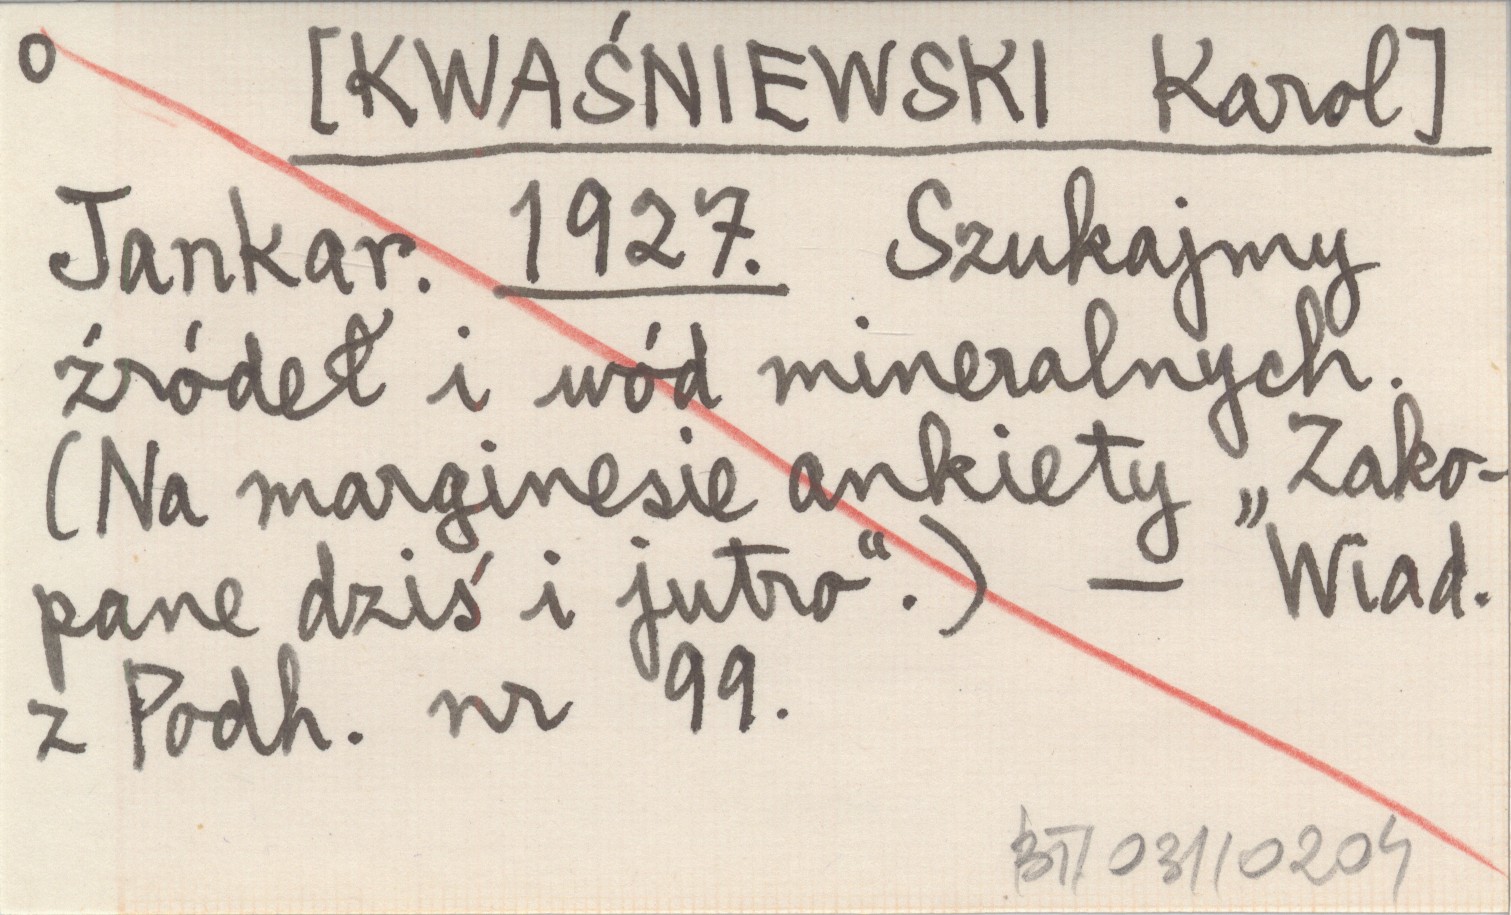 o [KWAŚNIEWSKI Karol]
Jankar. 1927. Szukajmy
źródeł i wód mineralnych.
(Na marginesie ankiety „Zako-
pane dziś i jutro“.) — Wiad.
z Podh. nr 99.